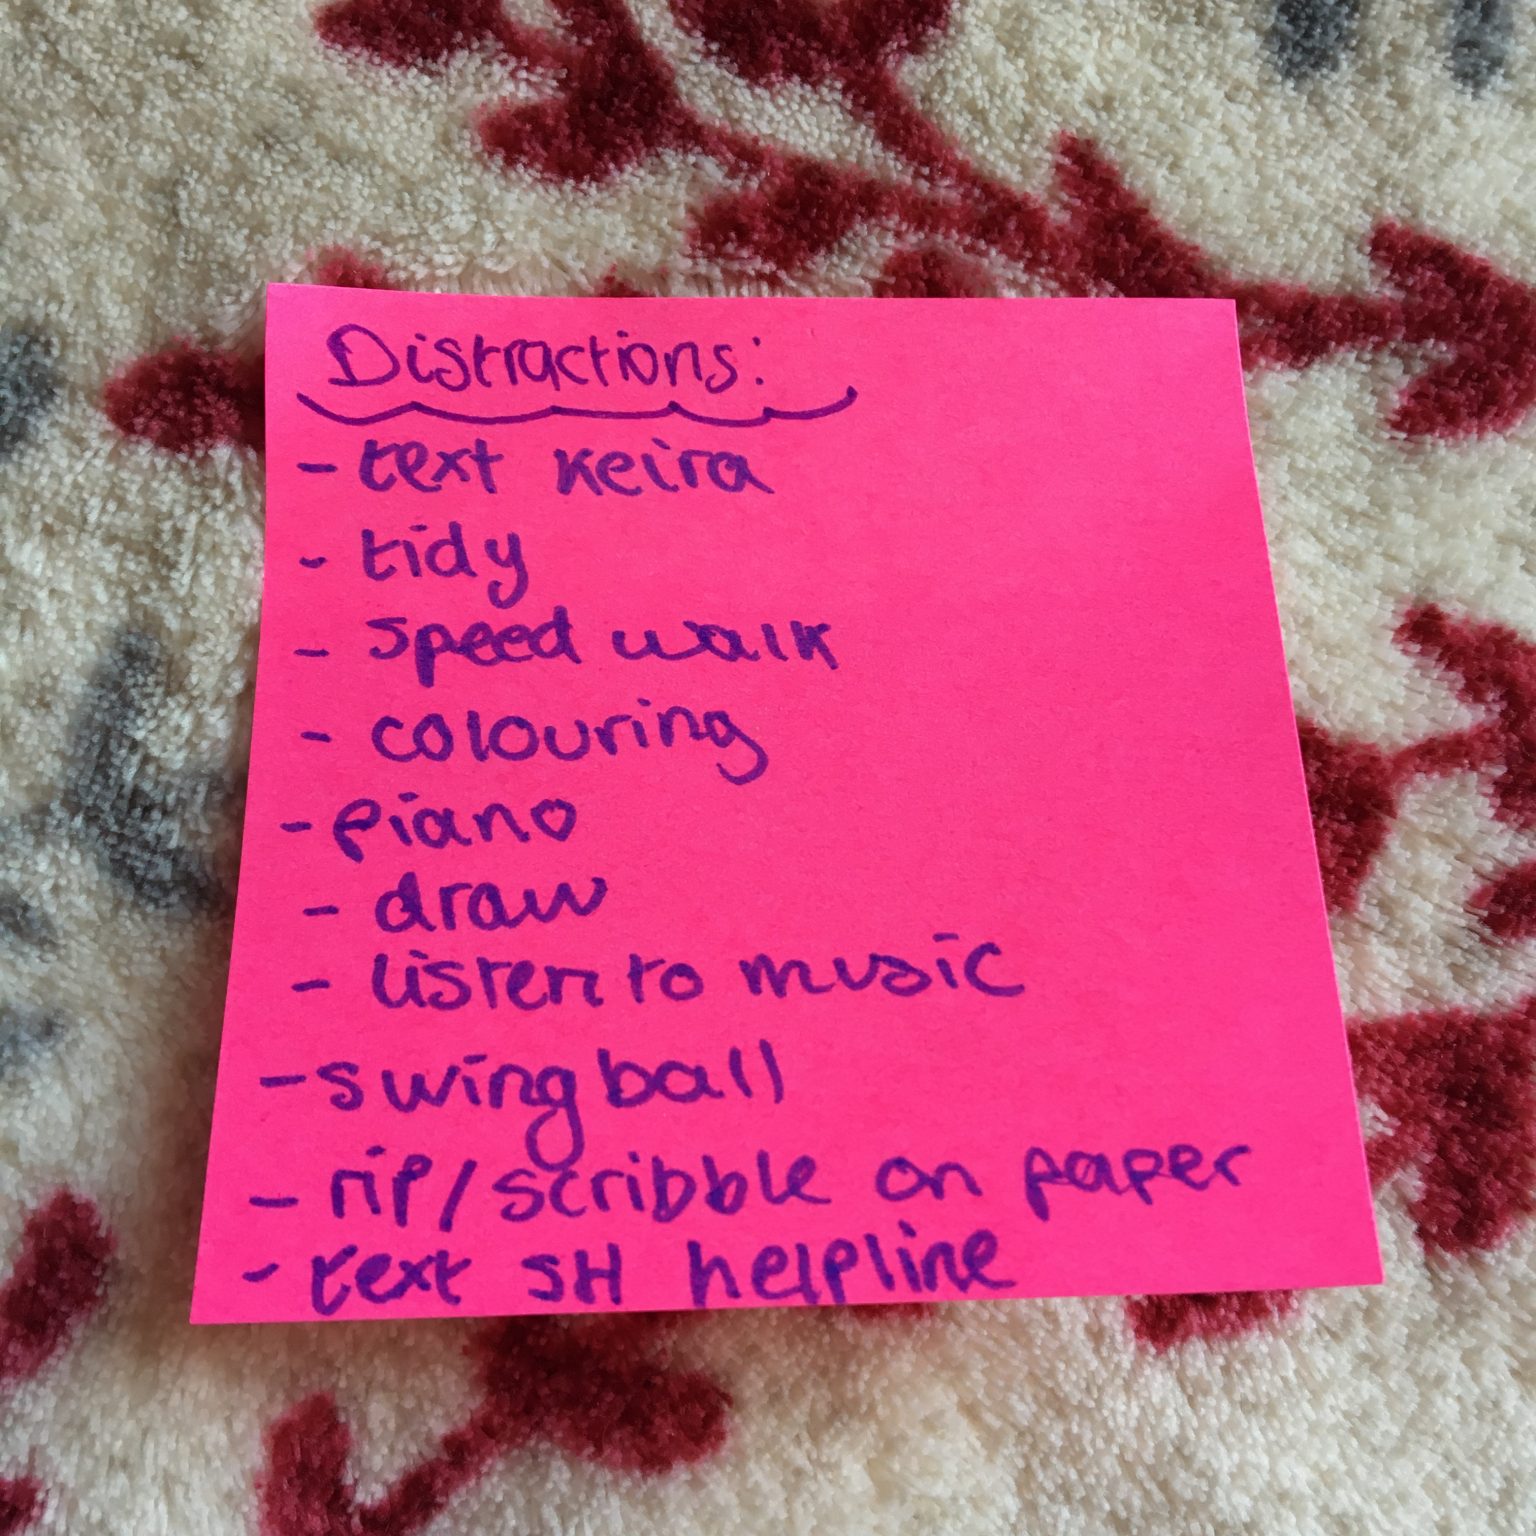 Distractions:
- text Keira
- tidy
- speed walk
- colouring
- piano
- draw
- listen to music
- swing ball
- rip/scribble on paper
- text SH helpline